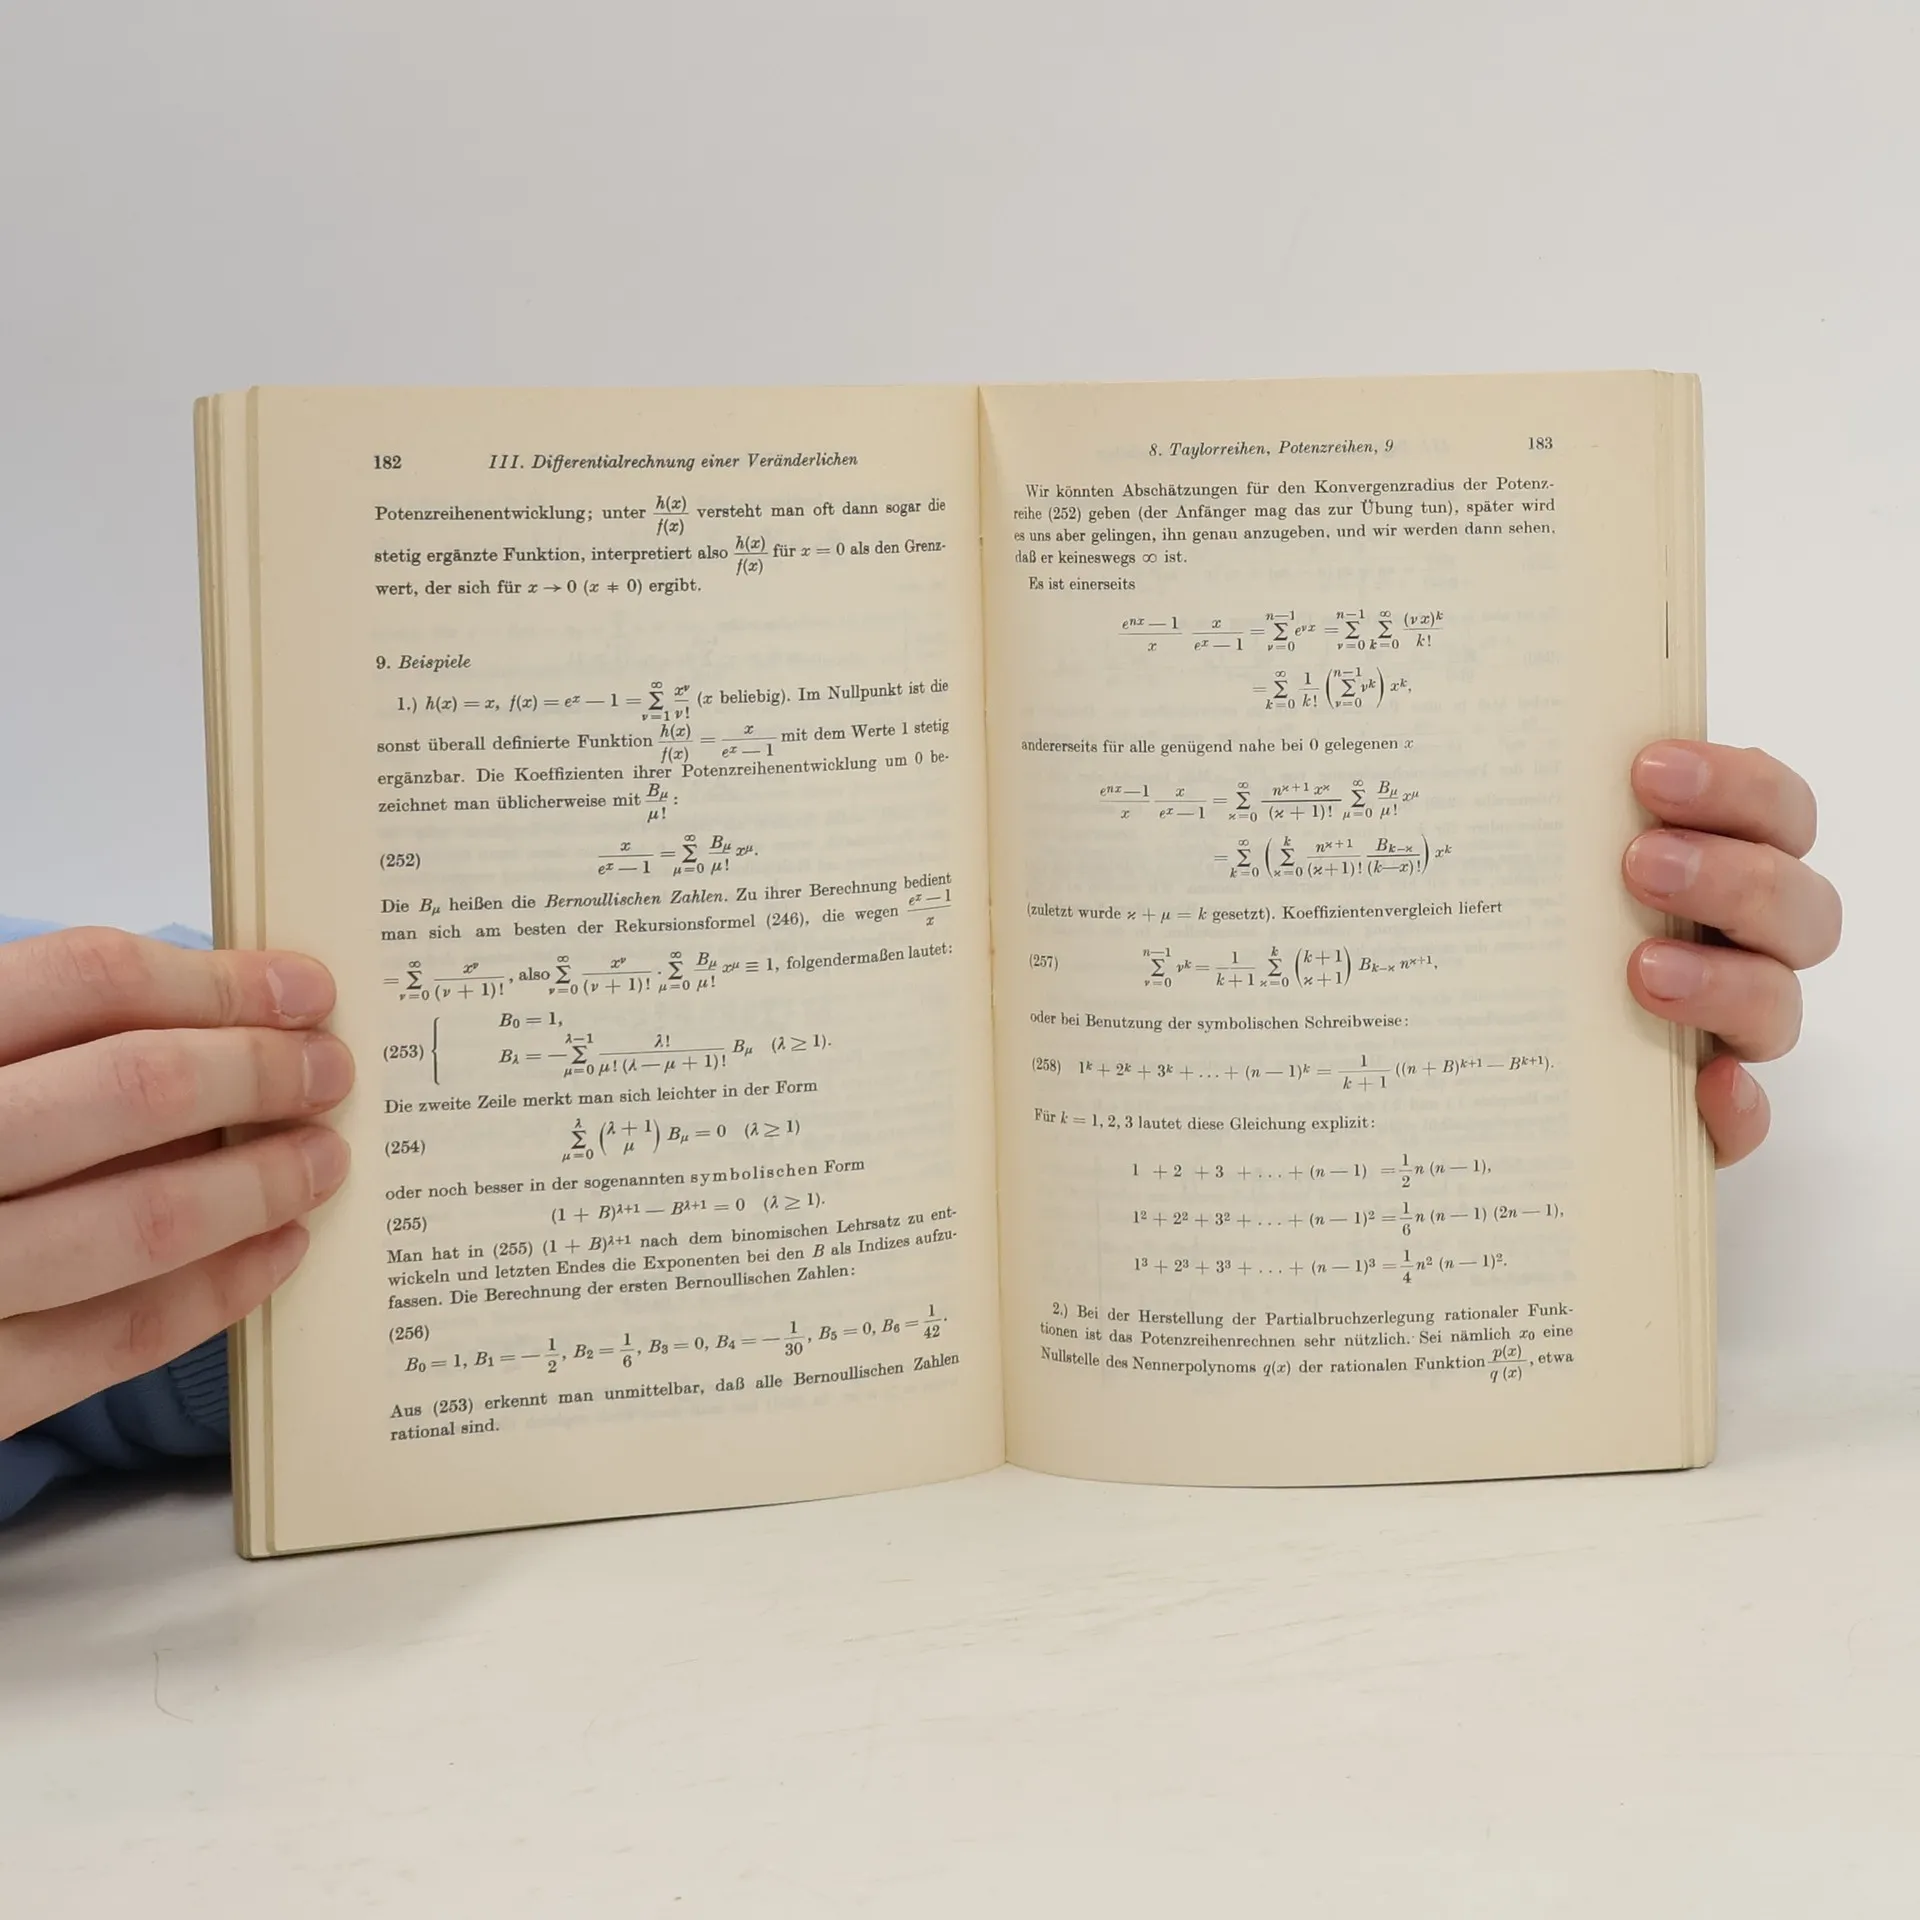 182 III. Differentialrechnung einer Veränderlichen
Potenzreihenentwicklung; unter h(x)/f(x) versteht man oft dann sogar die
stetig ergänzte Funktion, interpretiert also h(x)/f(x) für x = 0 als den Grenz-
wert, der sich für x → 0 (x ≠ 0) ergibt.
9. Beispiele
1.) h(x) = x, f(x) = e^x — 1 = ∑_{ν=1}^{∞} x^ν/ν! (x beliebig). Im Nullpunkt ist die
sonst überall definierte Funktion h(x)/f(x) = x/(e^x — 1) mit dem Werte 1 stetig
ergänzbar. Die Koeffizienten ihrer Potenzreihenentwicklung um 0 be-
zeichnet man üblicherweise mit B_μ/μ! :
(252) x/(e^x — 1) = ∑_{μ=0}^{∞} B_μ/μ! x^μ.
Die B_μ heißen die Bernoullischen Zahlen. Zu ihrer Berechnung bedient
man sich am besten der Rekursionsformel (246), die wegen (e^x — 1)/x
= ∑_{ν=0}^{∞} x^ν/(ν + 1)!, also ∑_{ν=0}^{∞} x^ν/(ν + 1)! · ∑_{μ=0}^{∞} B_μ/μ! x^μ ≡ 1, folgendermaßen lautet:
(253) { B_0 = 1,
B_λ = — ∑_{μ=0}^{λ—1} λ!/(μ! (λ — μ + 1)!) B_μ (λ ≥ 1).
Die zweite Zeile merkt man sich leichter in der Form
(254) ∑_{μ=0}^{λ} (λ + 1 μ) B_μ = 0 (λ ≥ 1)
oder noch besser in der sogenannten symbolischen Form
(255) (1 + B)^{λ+1} — B^{λ+1} = 0 (λ ≥ 1).
Man hat in (255) (1 + B)^{λ+1} nach dem binomischen Lehrsatz zu ent-
wickeln und letzten Endes die Exponenten bei den B als Indizes aufzu-
fassen. Die Berechnung der ersten Bernoullischen Zahlen:
(256)
B_0 = 1, B_1 = — 1/2, B_2 = 1/6, B_3 = 0, B_4 = — 1/30, B_5 = 0, B_6 = 1/42.
Aus (253) erkennt man unmittelbar, daß alle Bernoullischen Zahlen
rational sind.
8. Taylorreihen, Potenzreihen, 9 183
Wir könnten Abschätzungen für den Konvergenzradius der Potenz-
reihe (252) geben (der Anfänger mag das zur Übung tun), später wird
es uns aber gelingen, ihn genau anzugeben, und wir werden dann sehen,
daß er keineswegs ∞ ist.
Es ist einerseits
(e^{nx} — 1)/x x/(e^x — 1) = ∑_{ν=0}^{n—1} e^{νx} = ∑_{ν=0}^{n—1} ∑_{k=0}^{∞} (νx)^k/k!
= ∑_{k=0}^{∞} 1/k! (∑_{ν=0}^{n—1} ν^k) x^k,
andererseits für alle genügend nahe bei 0 gelegenen x
(e^{nx} — 1)/x x/(e^x — 1) = ∑_{ϰ=0}^{∞} n^{ϰ+1} x^ϰ/(ϰ + 1)! ∑_{μ=0}^{∞} B_μ/μ! x^μ
= ∑_{k=0}^{∞} (∑_{ϰ=0}^{k} n^{ϰ+1}/(ϰ+1)! B_{k—ϰ}/(k—ϰ)!) x^k
(zuletzt wurde ϰ + μ = k gesetzt). Koeffizientenvergleich liefert
(257) ∑_{ν=0}^{n—1} ν^k = 1/(k+1) ∑_{ϰ=0}^{k} (k+1 ϰ+1) B_{k—ϰ} n^{ϰ+1},
oder bei Benutzung der symbolischen Schreibweise:
(258) 1^k + 2^k + 3^k + ... + (n — 1)^k = 1/(k + 1) ((n + B)^{k+1} — B^{k+1}).
Für k = 1, 2, 3 lautet diese Gleichung explizit:
1 + 2 + 3 + ... + (n — 1) = 1/2 n (n — 1),
1² + 2² + 3² + ... + (n — 1)² = 1/6 n (n — 1) (2n — 1),
1³ + 2³ + 3³ + ... + (n — 1)³ = 1/4 n² (n — 1)².
2.) Bei der Herstellung der Partialbruchzerlegung rationaler Funk-
tionen ist das Potenzreihenrechnen sehr nützlich. Sei nämlich x_0 eine
Nullstelle des Nennerpolynoms q(x) der rationalen Funktion p(x)/q(x), etwa